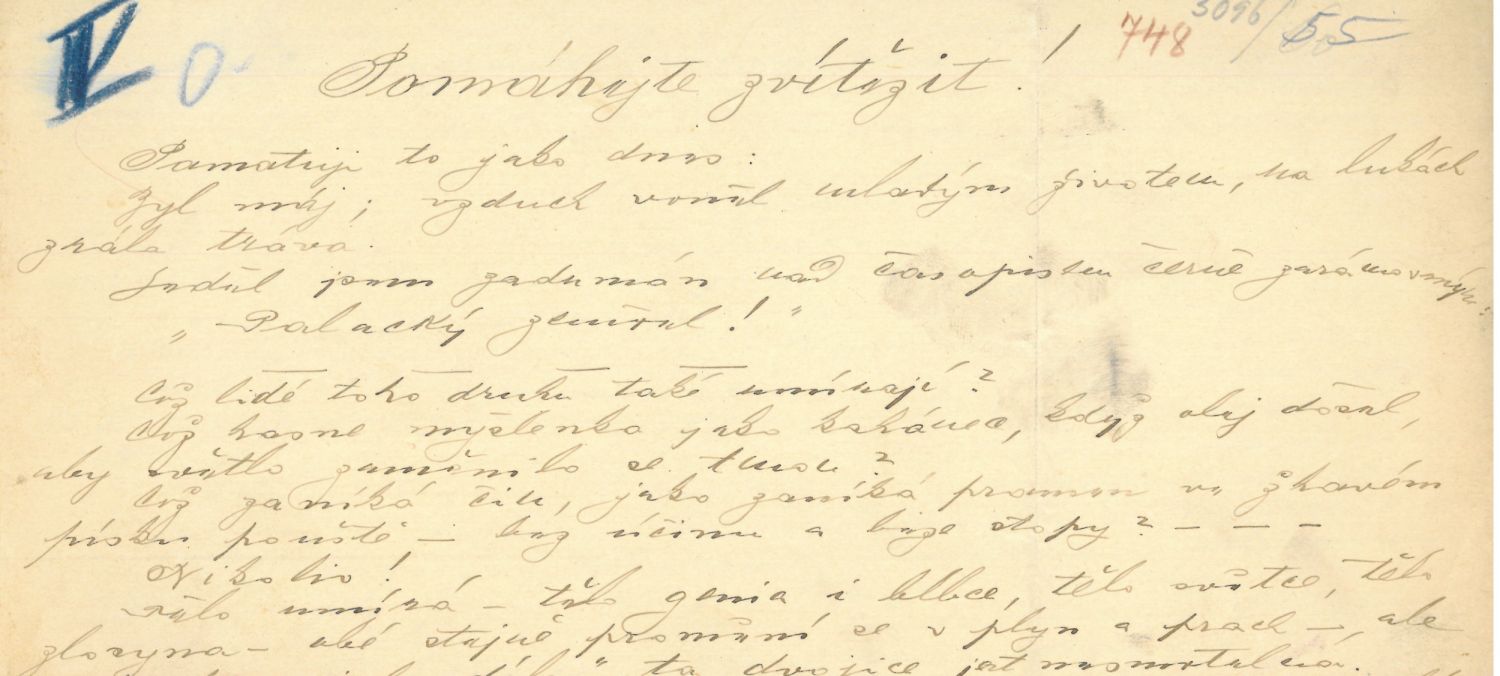 IV 0. 748 3096/55
Pomáhejte zvítězit!
Pamatuji to jako dnes:
Byl máj; vzduch voněl mladým životem, na lukách
zrála tráva.
Seděl jsem zadumán nad časopisem černě zarámovaným:
„Palacký zemřel!"
Což lidé toho druhu také umírají?
Což hasne myšlenka jako kahánec, když olej došel,
aby světlo zaměnilo se tmou?
Což zaniká čin, jako zaniká pramen ve žhavém
písku pouště – bez účinu a beze stopy? – – –
Nikoliv!
Tělo umírá – tělo genia i blbce, tělo světce, tělo
zlosyna – obé stejně promění se v plyn a prach –, ale
ta dvojice jest nesmrtelná.